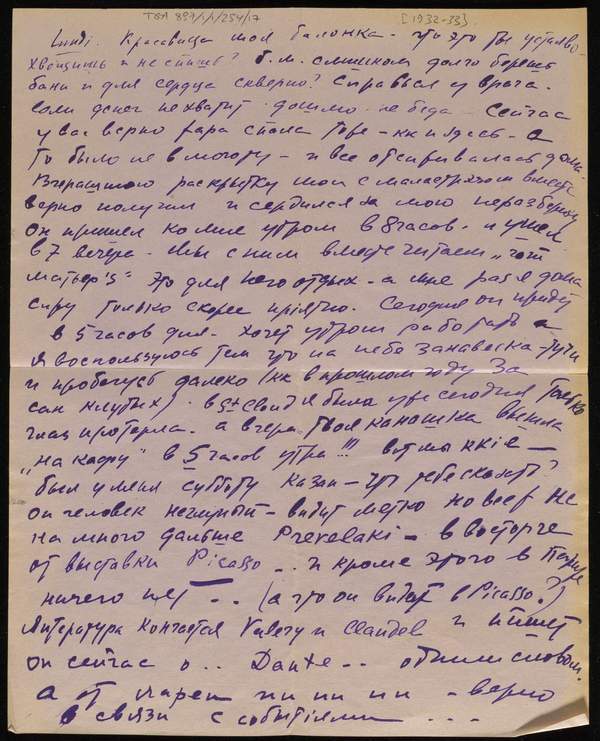 ТБА 897/1/1/254/17 [1932-33]
Lundi. Красавица моя балонка - что это ты устало
и не спишь? б.м. слишком долго берешь
бани и для сердца скверно? Справься у врача.
если денег не хватит дошлю - не беда - Сейчас
у вас верно жара спала - кк и здесь - а
то было не в моготу - и все отсиживалась дома.
Вчерашнюю раскрытку мою с вместе
верно получил и сердился за мою неразбериху
Он пришел ко мне утром в 8 часов - и ушел
в 7 вечера. Мы с ним вместе читаем
Это для него отдых - а мне раз я дома
сижу только скорее пріятно. Сегодня он придет
в 5 часов дня - хочет утром работать а
я воспользуюсь тем что на небе занавеска - тучи
и пробегусь далеко (кк в прошлом году за
) в St Cloud я была уже сегодня только
глаз протерла. а вчера твоя вышла
„на " в 5 часов утра!!! вот мы ккіе -
был у меня субботу - что тебе сказать?
он человек неглупый - видит метко но все не
на много дальше Prevelaki - в восторге
от выставки Picasso -.. и кроме этого в Париже
ничего нет - . . (а что он видит в Picasso?)
Литература кончается Valery и Claudel и пишет
он сейчас о .. Dante - - одним словом.
а от ни ни ни - верно
в связи с событіями - - -